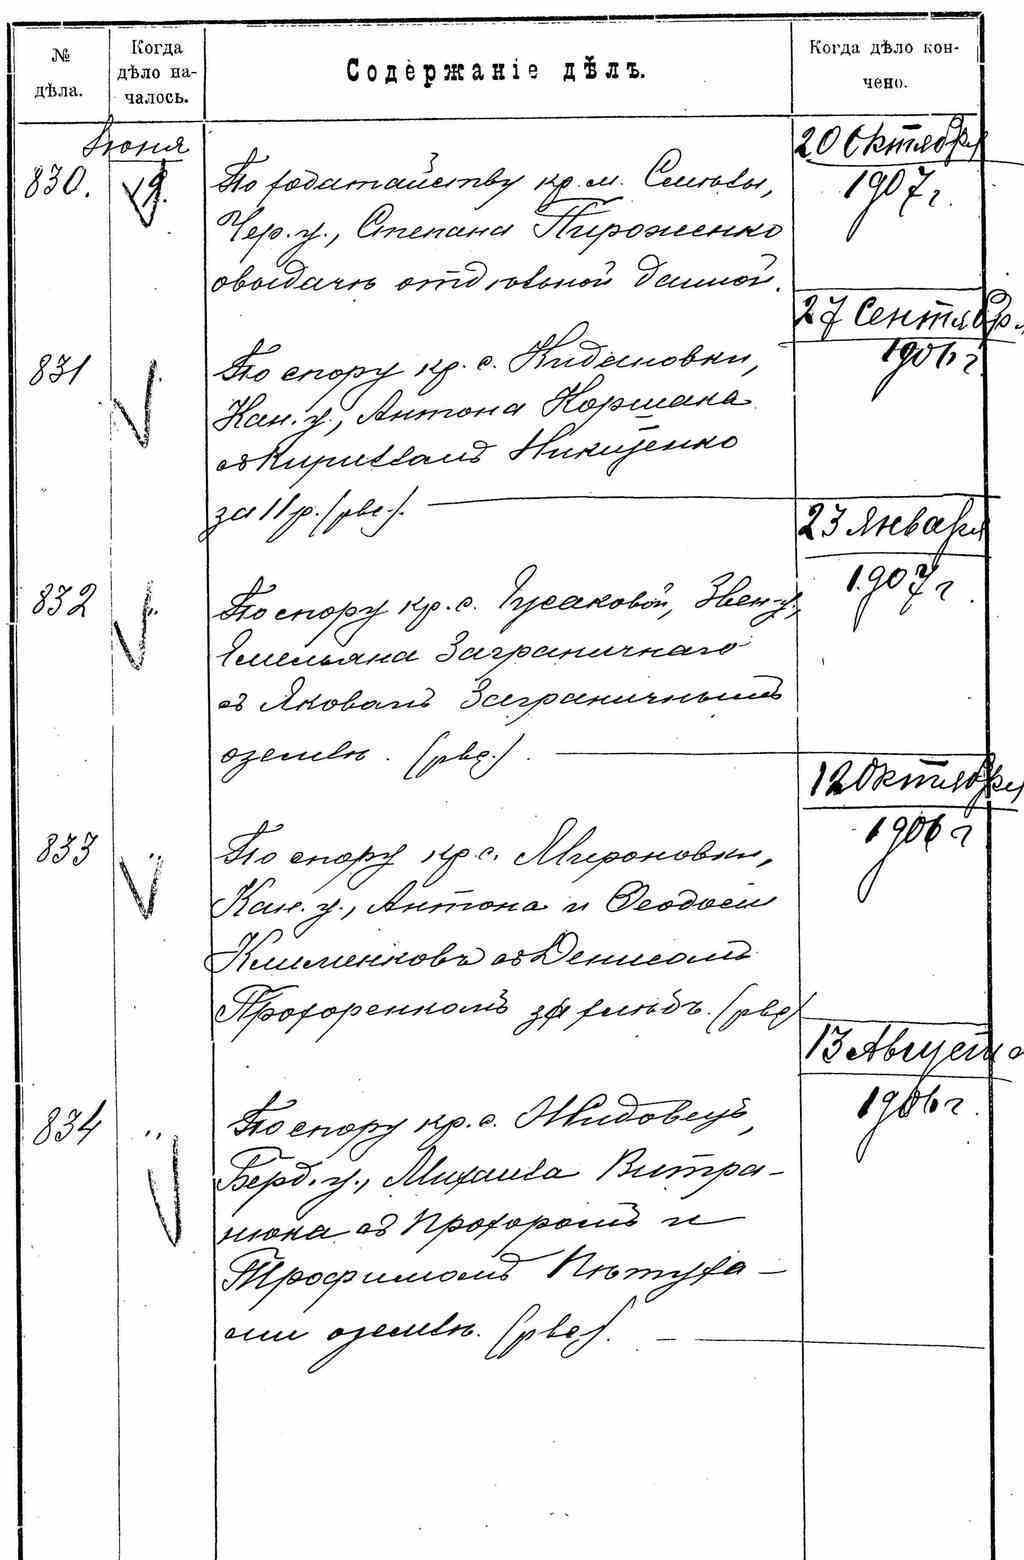 № дѣла.
Когда дѣло на-
чалось.
Содержаніе дѣлъ.
Когда дѣло кон-
чено.
Июня
830. 9.
По ходатайству кр. м. Смѣлы,
Чер. у., Степана Пироженко
о выдачѣ отдѣльной данной.
20 Октября
1907 г.
831
По спору кр. с. Кидановки,
Кан. у., Антона Коршака
съ Кириллом Никитенко
за 11 р. (рве.).
27 Сентября
1906 г.
832 "
По спору кр. с. Гусаковой, Звен. у.,
Емельяна Заграничнаго
съ Яковомъ Заграничнымъ
о землѣ. (рве.).
23 Января
1907 г.
833 "
По спору кр. с. Мироновки,
Кан. у., Антона и Ѳеодосія
Клименковъ съ Денисомъ
Прохоренкомъ за хлѣбъ. (рве)
12 Октября
1906 г
834 "
По спору кр. с. Жидовецъ,
Берд. у., Михаила Витра-
нюка съ Прохоромъ и
Трофимомъ Пѣтуха-
ми о землѣ. (рве).
13 Августа
1906 г.